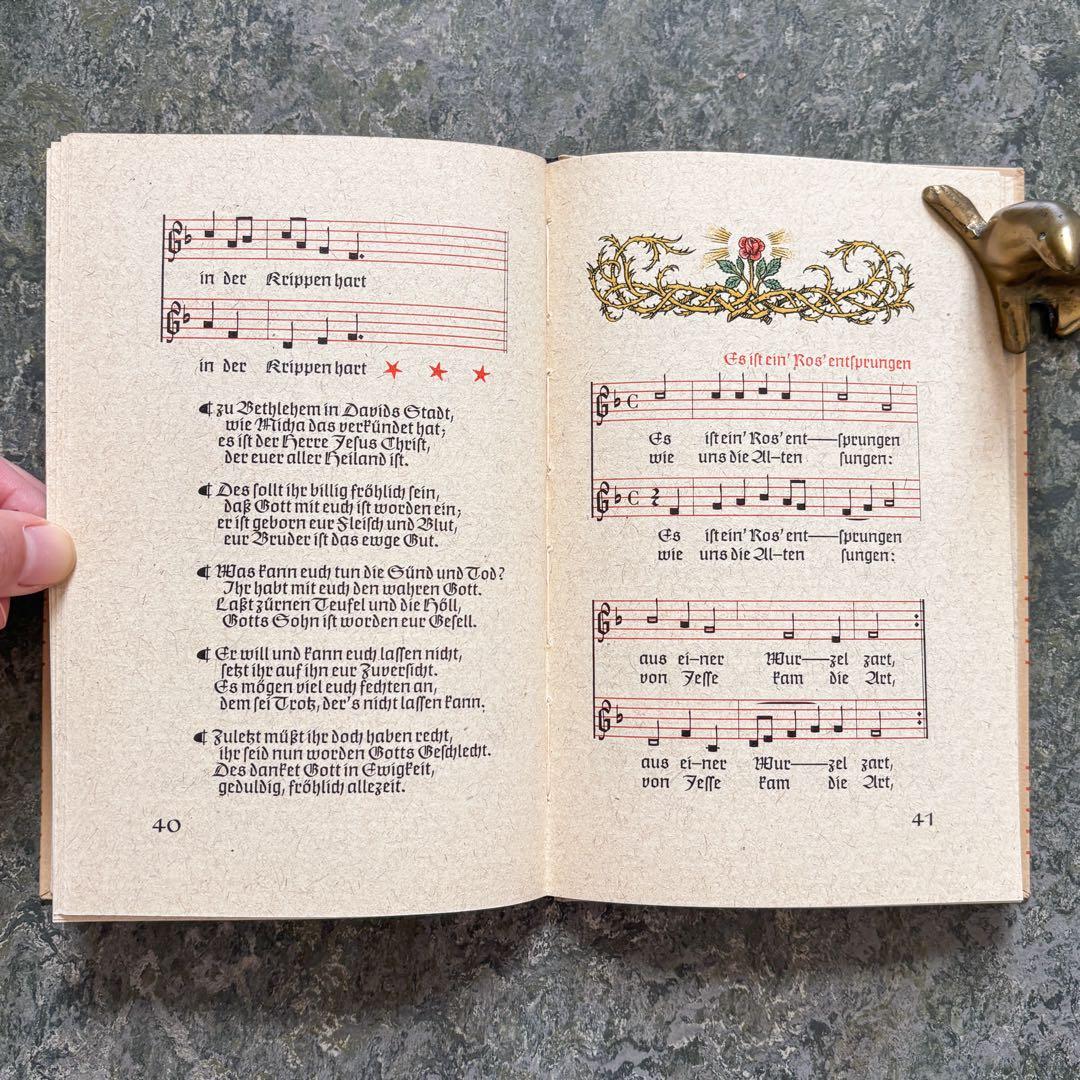 in der Krippen hart
in der Krippen hart
zu Bethlehem in Davids Stadt,
wie Micha das verkündet hat;
es ist der Herre Jesus Christ,
der euer aller Heiland ist.
Des sollt ihr billig fröhlich sein,
daß Gott mit euch ist worden ein;
er ist geborn eur Fleisch und Blut,
eur Bruder ist das ewge Gut.
Was kann euch tun die Sünd und Tod?
Ihr habt mit euch den wahren Gott.
Laßt zürnen Teufel und die Höll,
Gotts Sohn ist worden eur Gesell.
Er will und kann euch lassen nicht,
setzt ihr auf ihn eur Zuversicht.
Es mögen viel euch fechten an,
dem sei Trotz, der's nicht lassen kann.
Zuletzt müßt ihr doch haben recht,
ihr seid nun worden Gotts Geschlecht.
Des danket Gott in Ewigkeit,
geduldig, fröhlich allezeit.
40
Es ist ein' Ros' entsprungen
Es ist ein' Ros' ent—sprungen
wie uns die Al–ten sungen:
Es ist ein' Ros' ent—sprungen
wie uns die Al–ten sungen:
aus ei–ner Wur—zel zart,
von Jesse kam die Art,
aus ei–ner Wur—zel zart,
von Jesse kam die Art,
41